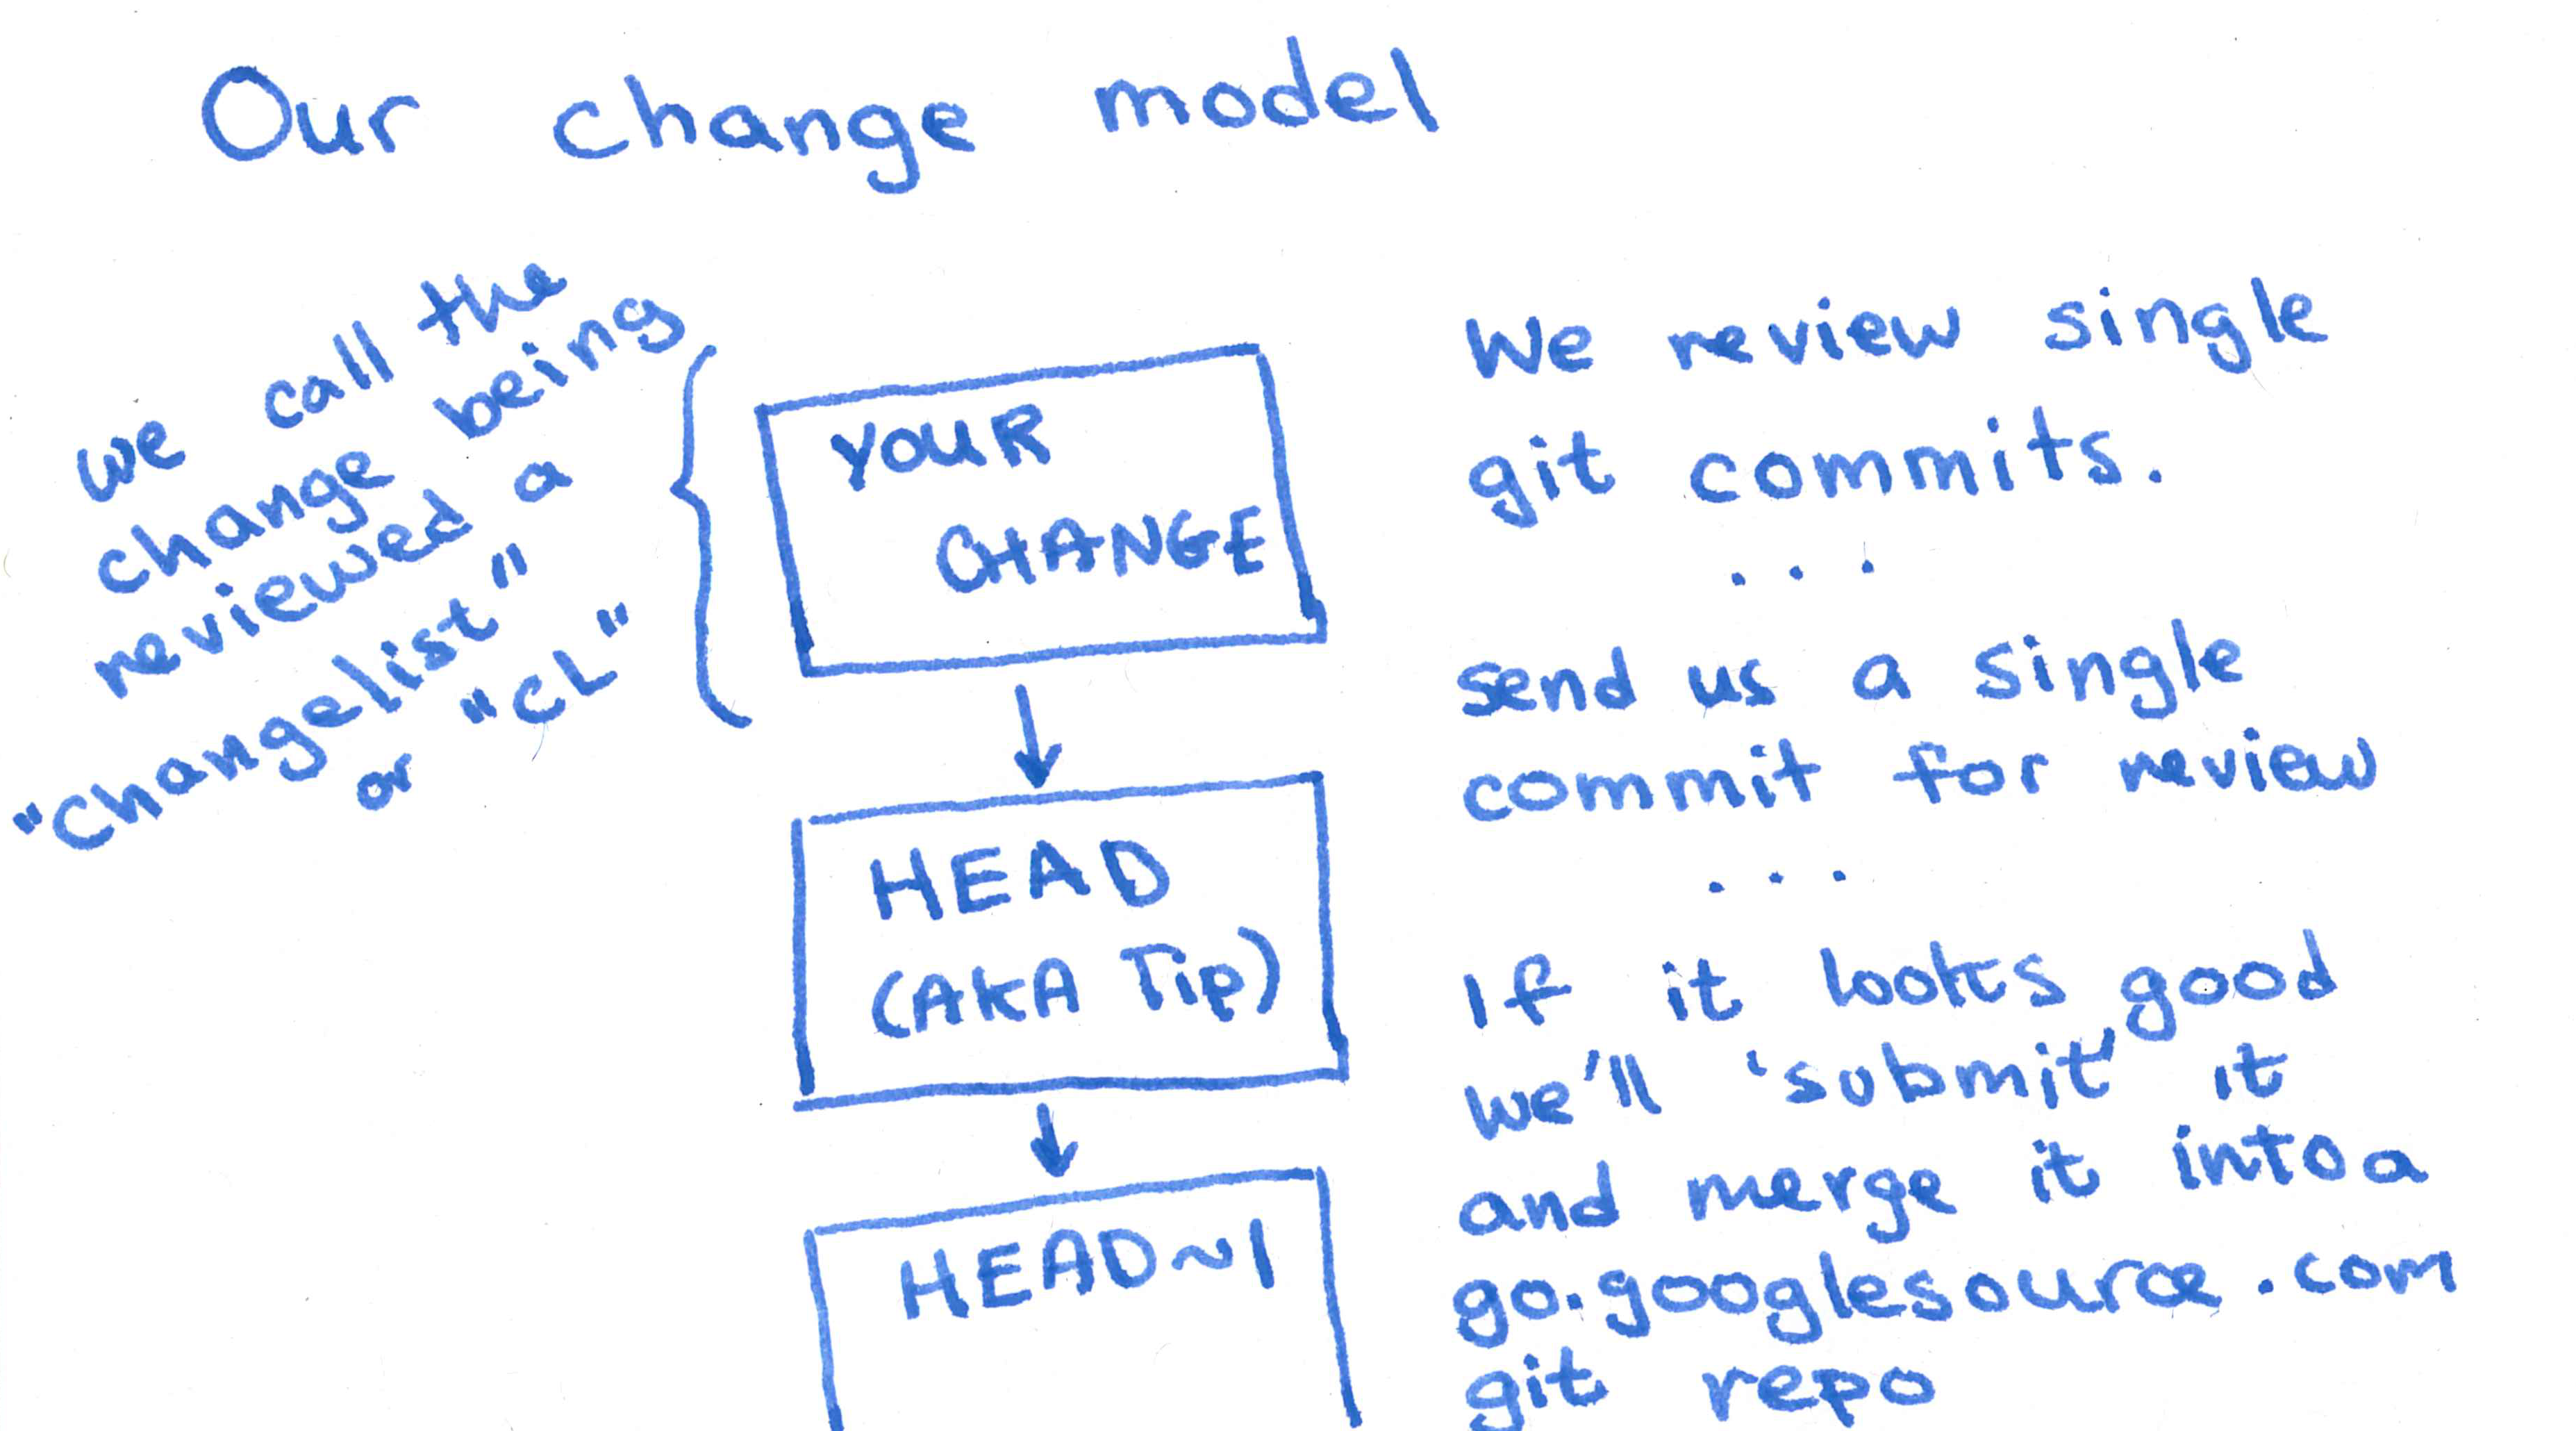 Our change model
we call the
change being
reviewed a
"changelist"
or "CL"
YOUR
CHANGE
HEAD
(AKA Tip)
HEAD~1
We review single
git commits.
...
send us a single
commit for review
...
If it looks good
we'll 'submit' it
and merge it into a
go.googlesource.com
git repo